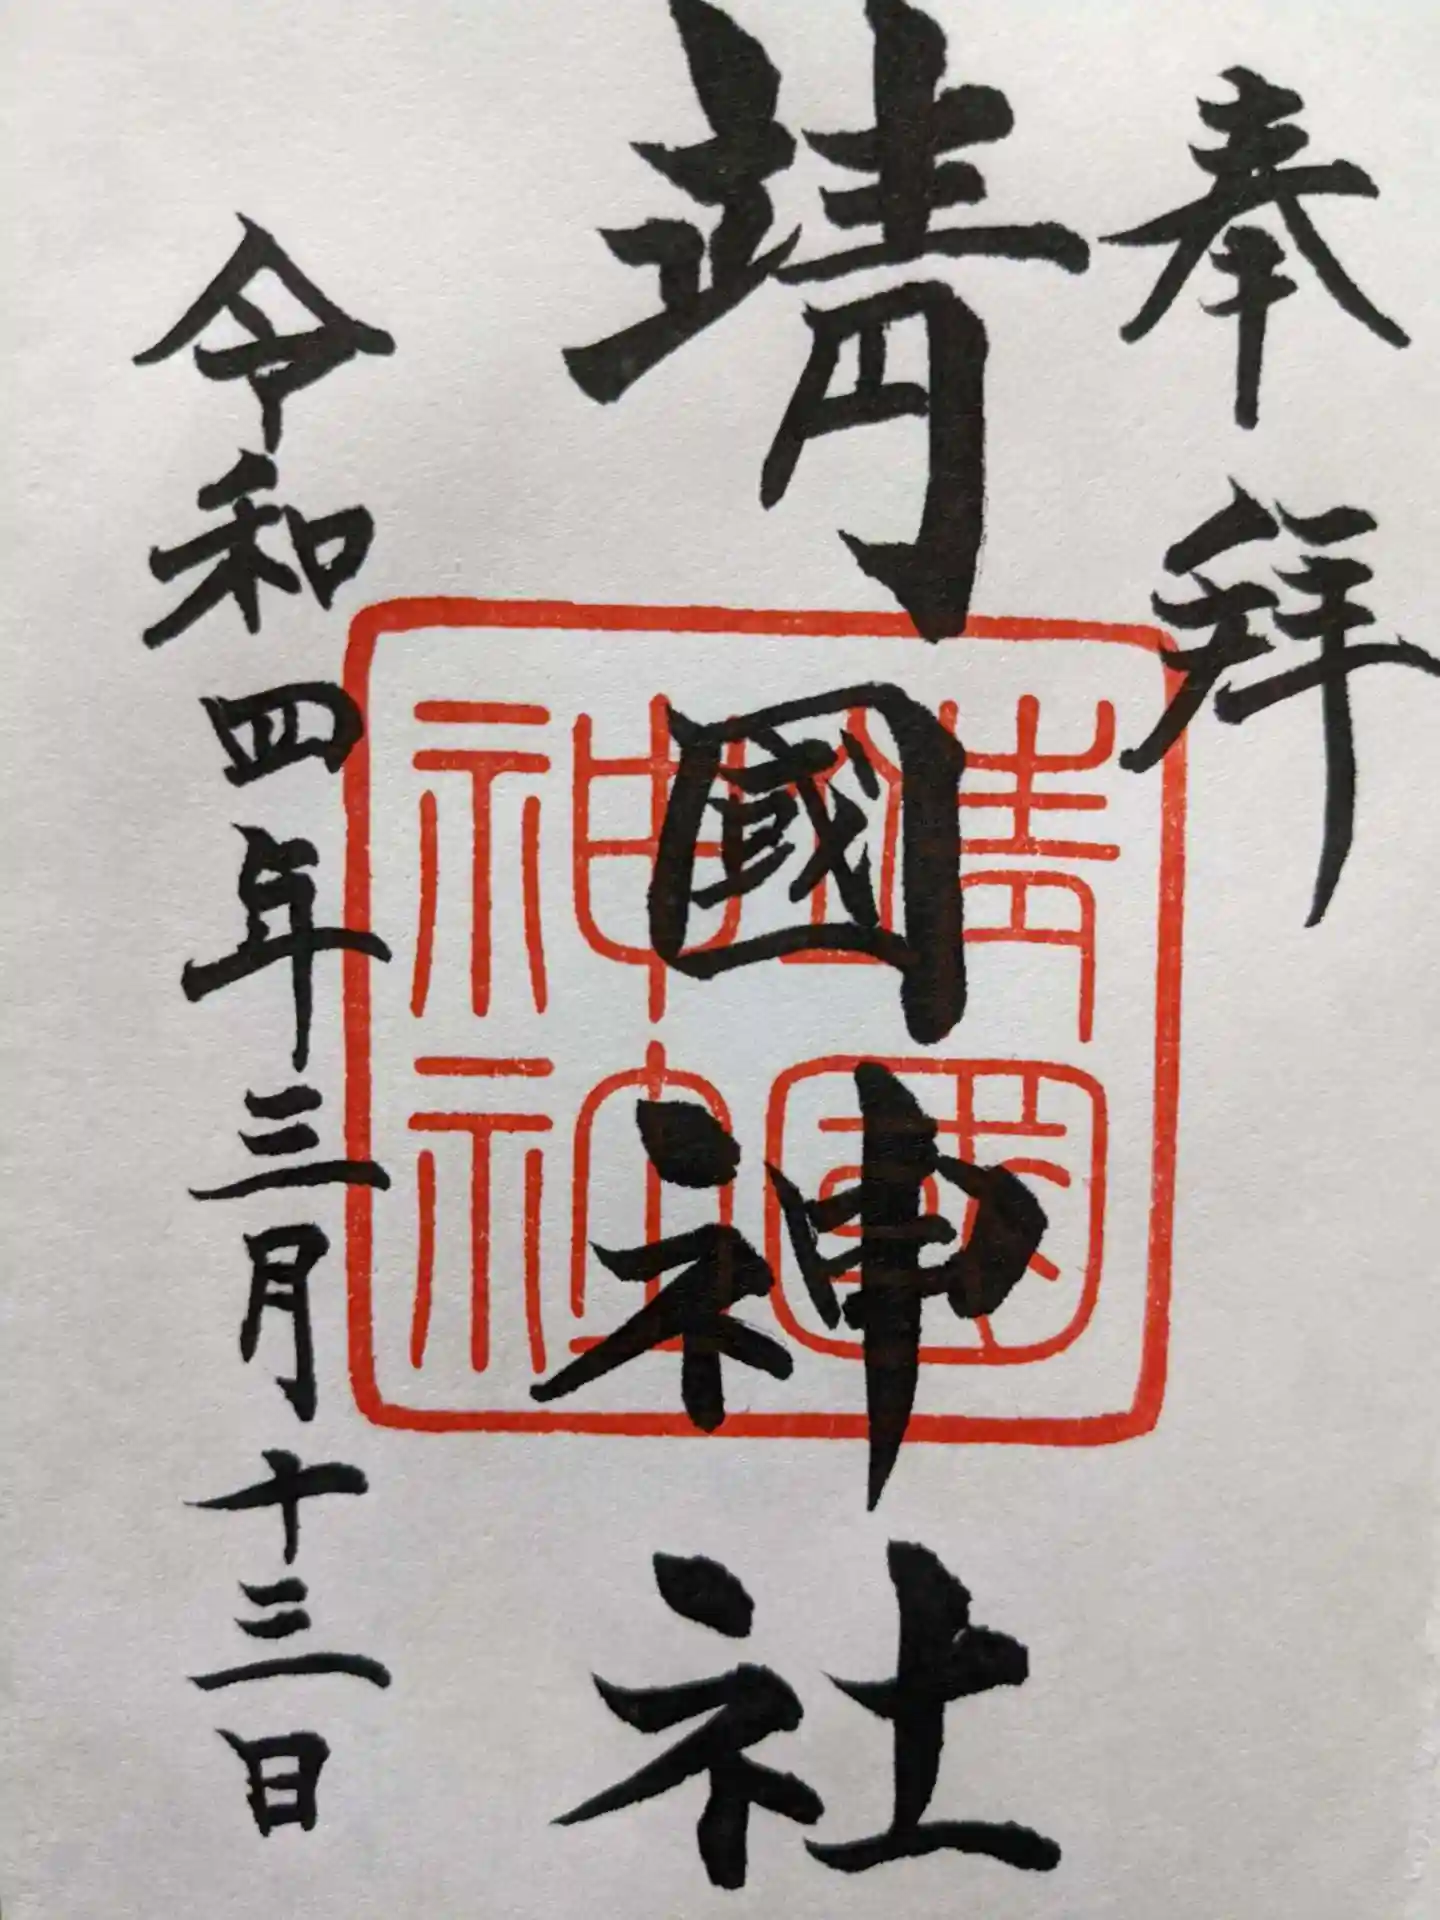 奉拜
靖國神社
靖國
神社
令和四年三月十三日